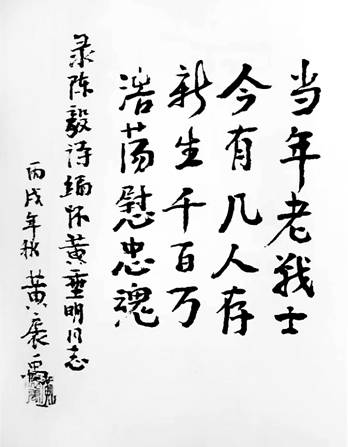 当年老战士
今有几人存
新生千百万
浩荡慰忠魂
录陈毅诗缅怀黄垂明同志
丙戌年秋 黄展